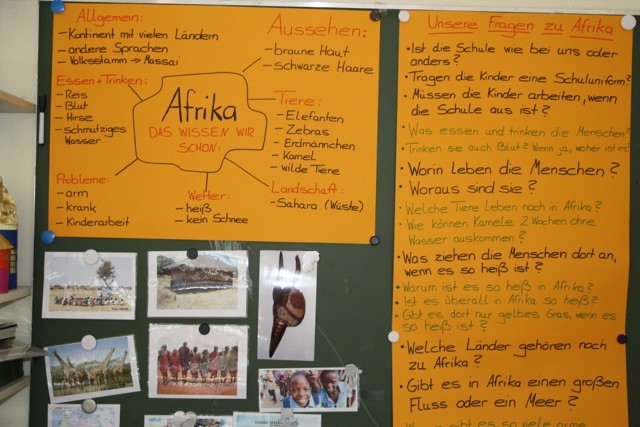 Allgemein:
- Kontinent mit vielen Ländern
- andere Sprachen
- Volksstamm → Massai
Essen + Trinken:
- Reis
- Blut
- Hirse
- schmutziges
Wasser
Probleme:
- arm
- krank
- Kinderarbeit
Afrika
DAS WISSEN WIR
SCHON:
Wetter:
- heiß
- kein Schnee
Aussehen:
- braune Haut
- schwarze Haare
Tiere:
- Elefanten
- Zebras
- Erdmännchen
- Kamel
- wilde Tiere
Landschaft:
- Sahara (Wüste)
Unsere Fragen zu Afrika
• Ist die Schule wie bei uns oder
anders?
• Tragen die Kinder eine Schuluniform?
• Müssen die Kinder arbeiten, wenn
die Schule aus ist?
• Was essen und trinken die Menschen?
• Trinken sie auch Blut? Wenn ja, woher ist es?
• Worin leben die Menschen?
• Woraus sind sie?
• Welche Tiere leben noch in Afrika?
• Wie können Kamele 2 Wochen ohne
Wasser auskommen?
• Was ziehen die Menschen dort an,
wenn es so heiß ist?
• Warum ist es so heiß in Afrika?
• Ist es überall in Afrika so heiß?
• Gibt es dort nur gelbes Gras, wenn es
so heiß ist?
• Welche Länder gehören noch
zu Afrika?
• Gibt es in Afrika einen großen
Fluss oder ein Meer?